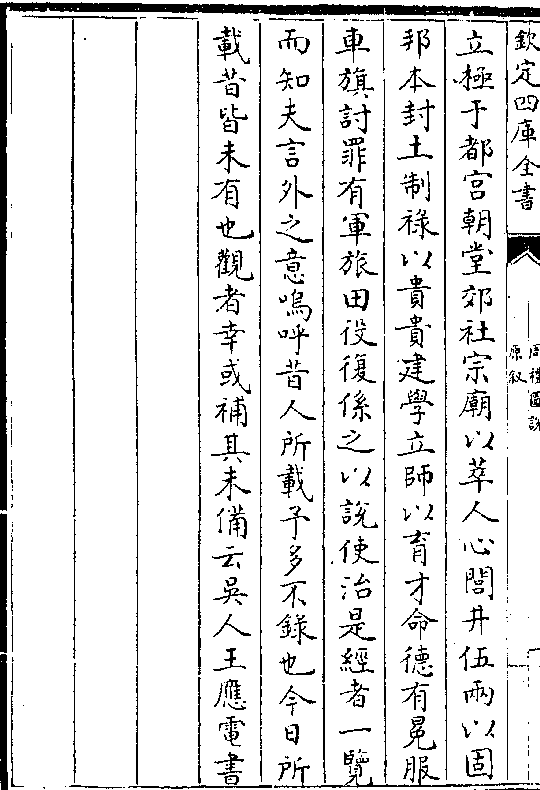 欽定四庫全書
周禮圖說
原敘
立極于都宮朝堂郊社宗廟以萃人心閭井伍兩以固
邦本封土制祿以貴貴建學立師以育才命德有冕服
車旗討罪有軍旅田役復係之以說使治是經者一覽
而知夫言外之意嗚呼昔人所載予多不錄也今日所
載昔皆未有也觀者幸或補其未備云吳人王應電書